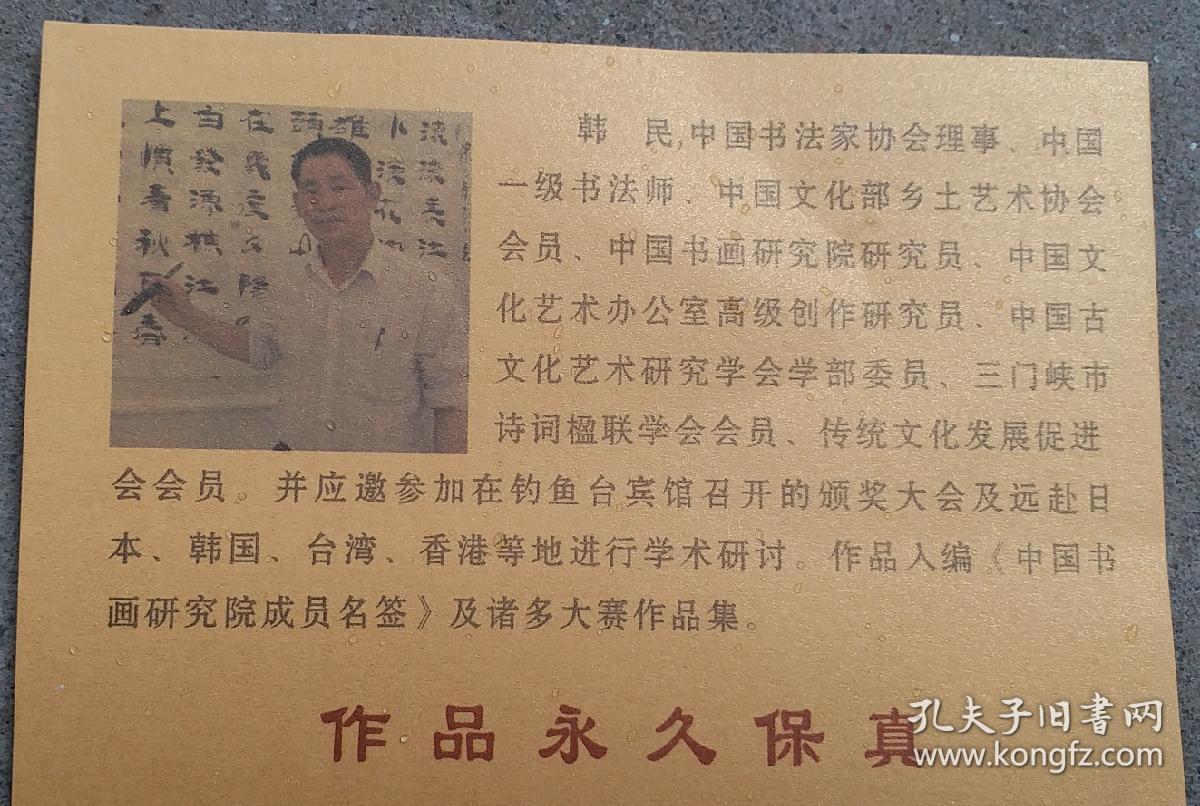 韩 民,中国书法家协会理事、中国
一级书法师、中国文化部乡土艺术协会
会员、中国书画研究院研究员、中国文
化艺术办公室高级创作研究员、中国古
文化艺术研究学会学部委员、三门峡市
诗词楹联学会会员、传统文化发展促进
会会员。并应邀参加在钓鱼台宾馆召开的颁奖大会及远赴日
本、韩国、台湾、香港等地进行学术研讨。作品入编《中国书
画研究院成员名签》及诸多大赛作品集。
作品永久保真
孔夫子旧书网
www.kongfz.com